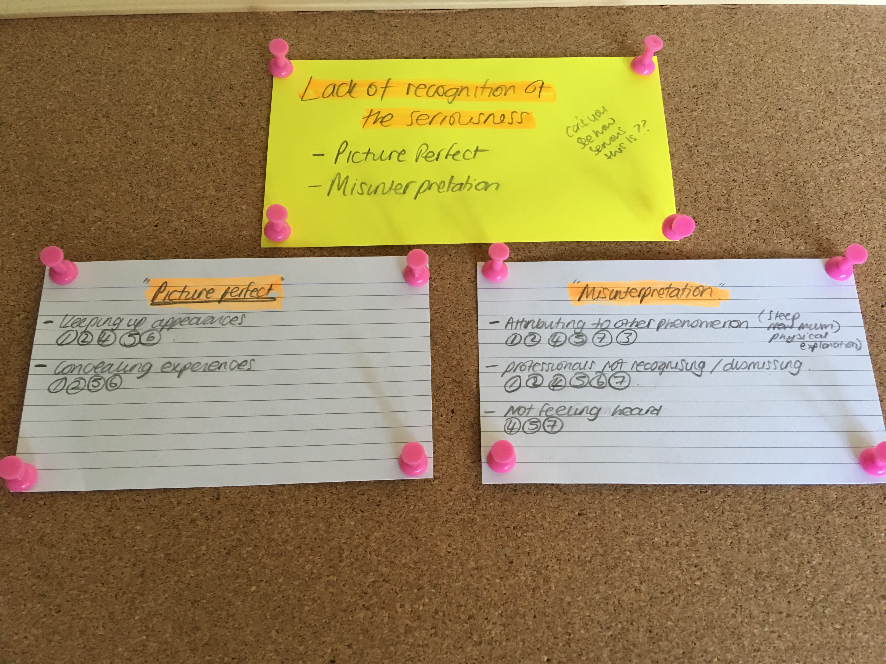 Lack of recognition of
the seriousness
- Picture Perfect
- Misinterpretation
can't you
see how
serious
this is??
"Picture perfect"
- Keeping up appearances
① ② ④ ⑤ ⑥
- Concealing experiences
① ② ⑤ ⑥
"Misinterpretation"
- Attributing to other phenomenon (sleep
new mum)
physical
explanation)
① ② ④ ⑤ ⑦ ③
- professionals not recognising / dismissing
① ② ④ ⑤ ⑥ ⑦
- Not feeling heard
④ ⑤ ⑦